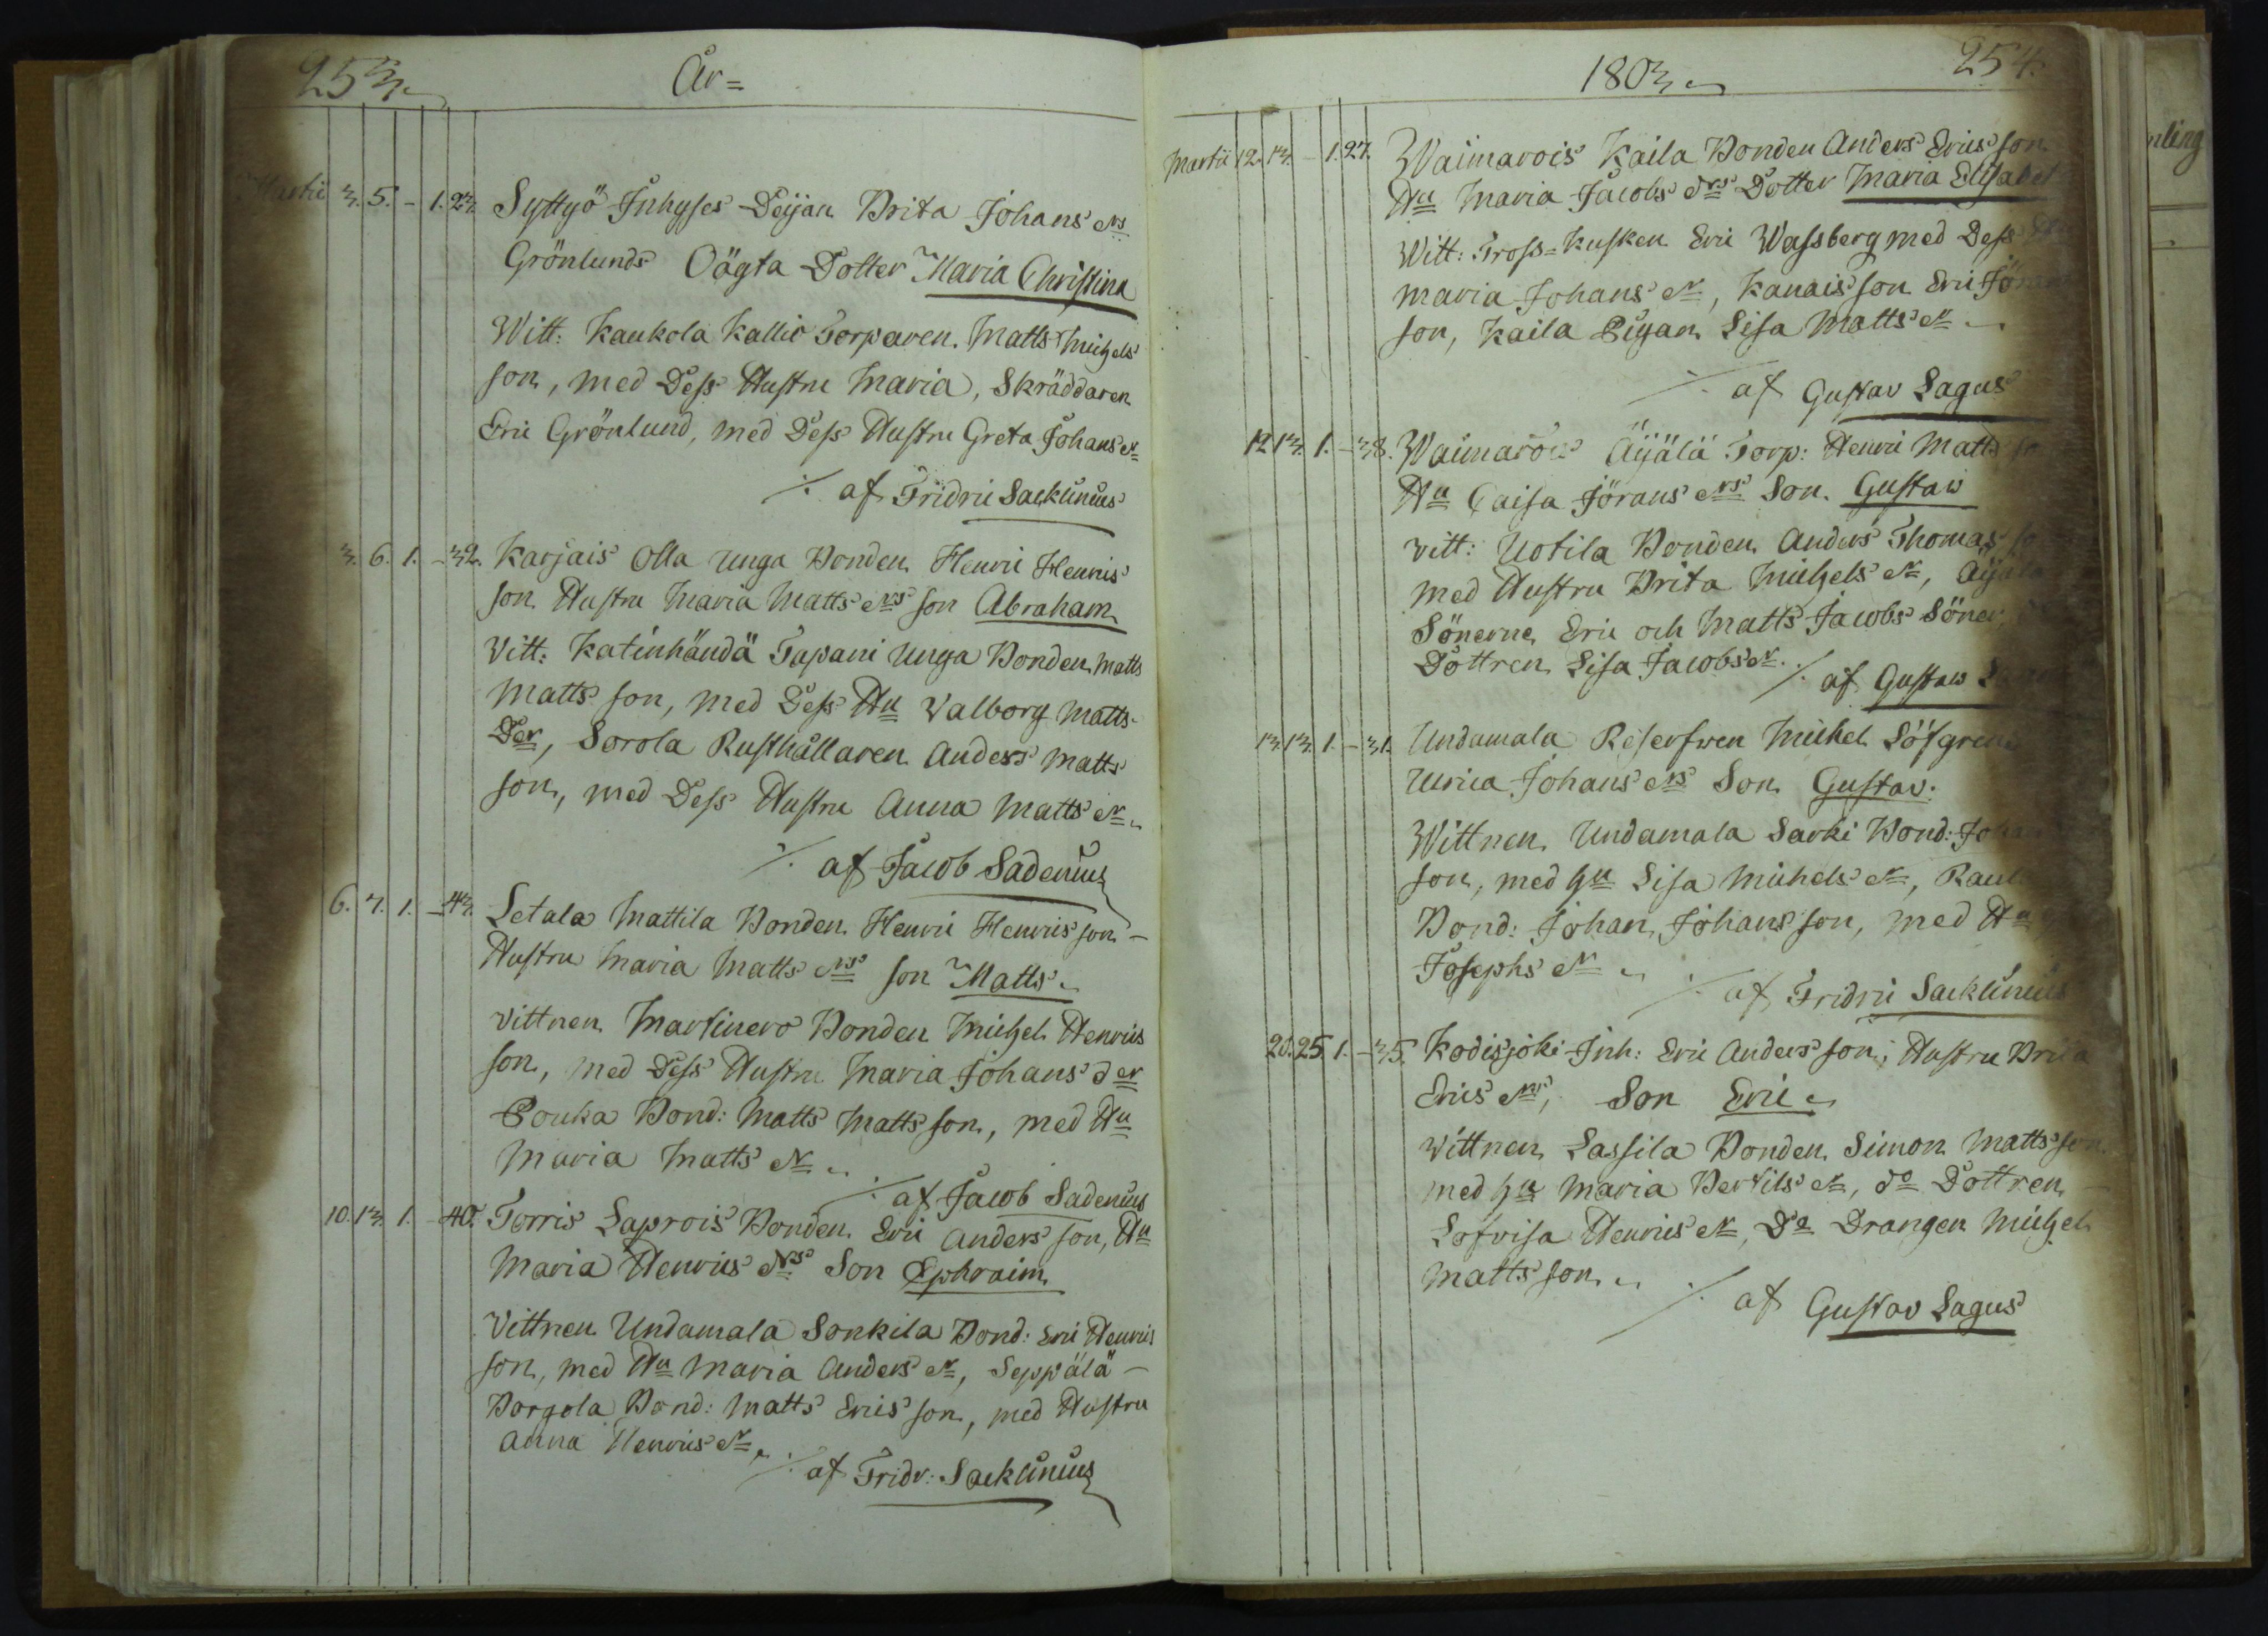 253
År =
Martii 3. 5. - 1. 23. Syttyö Inhyses Deijan Brita Johans drs
Grönlunds Oägta Dotter Maria Christina
Witt: Kaukola Kallio Torparen Matts Michels
son, med Dess Hustru Maria, Skräddaren
Eric Grönlund, med Dess Hustru Greta Johans dr
./. af Fridric Sacklinius
3. 6. 1. - 32. Karjais Olla unga Bonden Henric Henrics
son Hustru Maria Matts drs son Abraham
Vitt: Katinhändä Tapani unga Bonden Matts
Matts son, med Dess Hu Valborg Matts
Der, Sorola Rusthållaren Anders Matts
son, med Dess Hustru Anna Matts dr
./. af Jacob Sadenius
6. 7. 1. - 43. Letala Mattila Bonden Henric Henrics son
Hustru Maria Matts drs son Matts
Vittnen Marfinero Bonden Michel Henrics
son, med Dess Hustru Maria Johans der
Pouka Bond: Matts Matts son, med Hu
Maria Matts dr
./. af Jacob Sadenius
10. 13. 1. - 40. Torris Laprois Bonden Eric Anders son, Hu
Maria Henrics drs Son Ephraim
Vittnen Undamala Sonkila Bond: Eric Henrics
son, med Hu Maria Anders dr, Seppälä
Borgola Bond: Matts Erics son, med Hustru
Anna Henrics dr
./. af Fridr: Sacklinius
1803
254.
Martii 12. 13. - 1. 27. Waimarois Kaila Bonden Anders Erics son
Hu Maria Jacobs drs Dotter Maria Elisabet
Witt: Tross-Kusken Eric Wassberg med Dess
Maria Johans dr, Kanais son Eric Jörans
son, Kaila Pigan Lisa Matts dr
./. af Gustav Lagus
12 13. 1. - 38. Waimarois Äijälä Torp: Henric Matts
Hu Caisa Jörans drs Son Gustaw
Vitt: Uotila Bonden Anders Thomas
med Hustru Brita Michels dr, Äijälä
Sönerne Eric och Matts Jacobs Söner,
Dottren Lisa Jacobs dr
./. af Gustaw
13. 13. 1. - 31. Undamala Reserfwen Michel Löfgrens
Ulrica Johans drs Son Gustav.
Wittnen Undamala Sarki Bond:
son, med hu Lisa Michels dr,
Bond: Johan Johans son, med Hu
Josephs dr
./. af Fridric Sacklinius
20. 25. 1. - 35. Kodisjoki Inh: Eric Anders son, Hustru Brita
Erics drs, Son Eric
Vittnen Lassila Bonden Simon Matts son
med hu Maria Bertils dr, do Dottren
Lofvisa Henrics dr, Do Drangen Michel
Matts son
./. af Gustav Lagus
nling